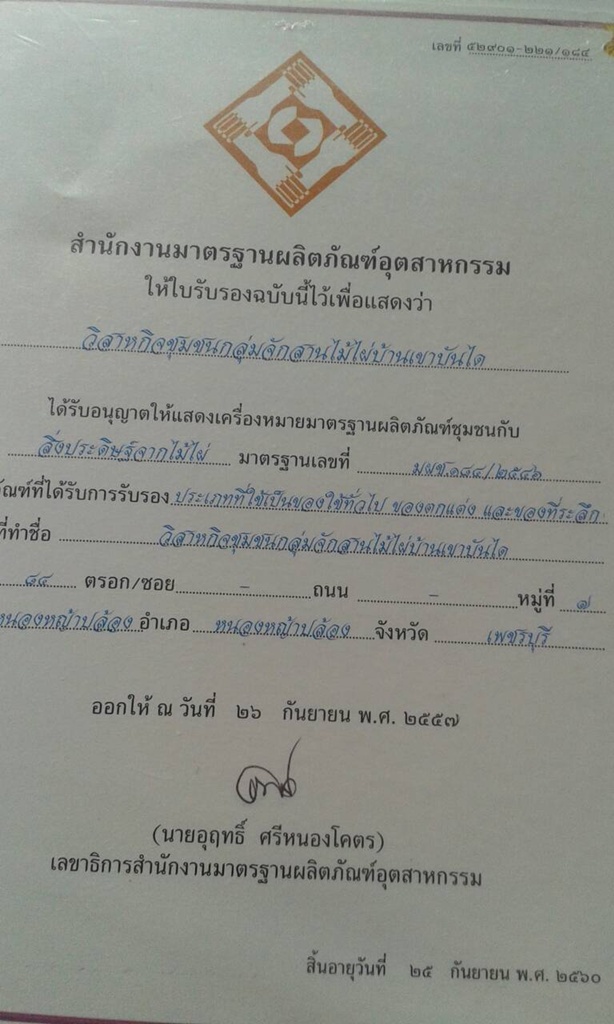 เลขที่ ๕๒๙๐๑-๒๒๑/๑๘๔
สำนักงานมาตรฐานผลิตภัณฑ์อุตสาหกรรม
ให้ใบรับรองฉบับนี้ไว้เพื่อแสดงว่า
วิสาหกิจชุมชนกลุ่มจักสานไม้ไผ่บ้านเขาบันได
ได้รับอนุญาตให้แสดงเครื่องหมายมาตรฐานผลิตภัณฑ์ชุมชนกับ
สิ่งประดิษฐ์จากไม้ไผ่ มาตรฐานเลขที่ มผช.๑๘๔/๒๕๔๖
ัณฑ์ที่ได้รับการรับรอง ประเภทที่ใช้เป็นของใช้ทั่วไป ของตกแต่ง และของที่ระลึก
ที่ทำชื่อ วิสาหกิจชุมชนกลุ่มจักสานไม้ไผ่บ้านเขาบันได
๘๔ ตรอก/ซอย - ถนน - หมู่ที่ ๗
หนองหญ้าปล้อง อำเภอ หนองหญ้าปล้อง จังหวัด เพชรบุรี
ออกให้ ณ วันที่ ๒๖ กันยายน พ.ศ. ๒๕๕๗
(นายอุฤทธิ์ ศรีหนองโคตร)
เลขาธิการสำนักงานมาตรฐานผลิตภัณฑ์อุตสาหกรรม
สิ้นอายุวันที่ ๒๕ กันยายน พ.ศ. ๒๕๖๐